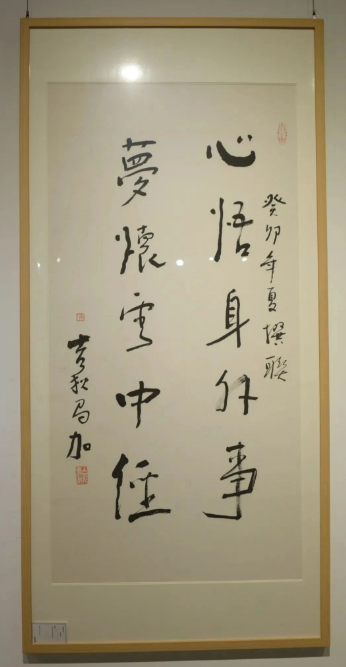 癸卯年夏撰聯
心悟身外事
夢懷雲中徑
吉狄馬加